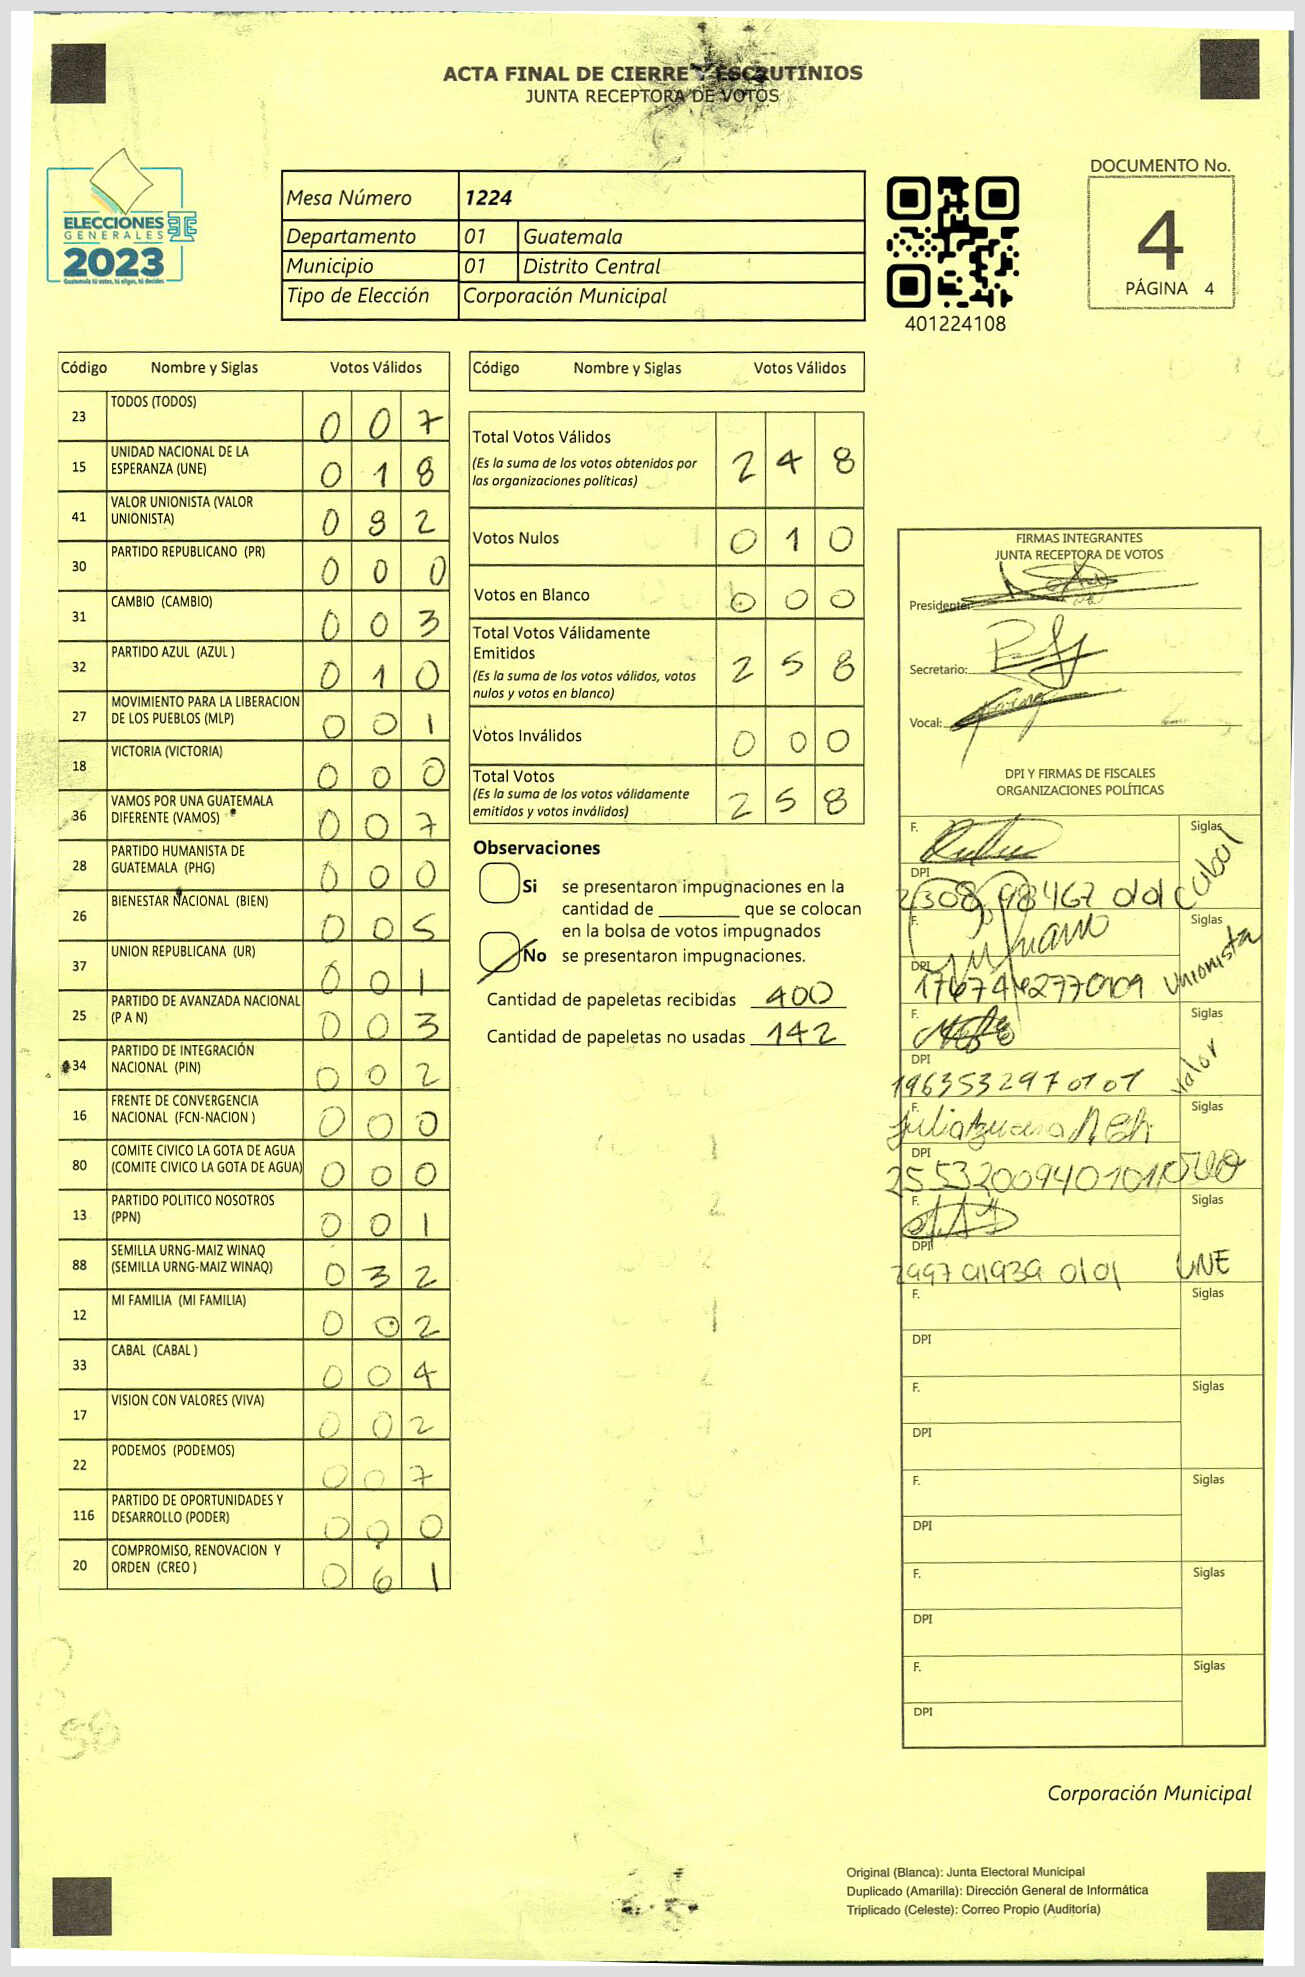 ACTA FINAL DE CIERRE Y ESCRUTINIOS
JUNTA RECEPTORA DE VOTOS
ELECCIONES
GENERALES
2023
Guatemala tú votas, tú eliges, tú decides
Mesa Número 1224
Departamento 01 Guatemala
Municipio 01 Distrito Central
Tipo de Elección Corporación Municipal
401224108
DOCUMENTO No.
4
PÁGINA 4
Código Nombre y Siglas Votos Válidos
23 TODOS (TODOS) 0 0 7
15 UNIDAD NACIONAL DE LA
ESPERANZA (UNE) 0 1 8
41 VALOR UNIONISTA (VALOR
UNIONISTA) 0 8 2
30 PARTIDO REPUBLICANO (PR) 0 0 0
31 CAMBIO (CAMBIO) 0 0 3
32 PARTIDO AZUL (AZUL ) 0 1 0
27 MOVIMIENTO PARA LA LIBERACION
DE LOS PUEBLOS (MLP) 0 0 1
18 VICTORIA (VICTORIA) 0 0 0
36 VAMOS POR UNA GUATEMALA
DIFERENTE (VAMOS) 0 0 7
28 PARTIDO HUMANISTA DE
GUATEMALA (PHG) 0 0 0
26 BIENESTAR NACIONAL (BIEN) 0 0 5
37 UNION REPUBLICANA (UR) 0 0 1
25 PARTIDO DE AVANZADA NACIONAL
(P A N) 0 0 3
34 PARTIDO DE INTEGRACIÓN
NACIONAL (PIN) 0 0 2
16 FRENTE DE CONVERGENCIA
NACIONAL (FCN-NACION ) 0 0 0
80 COMITE CIVICO LA GOTA DE AGUA
(COMITE CIVICO LA GOTA DE AGUA) 0 0 0
13 PARTIDO POLITICO NOSOTROS
(PPN) 0 0 1
88 SEMILLA URNG-MAIZ WINAQ
(SEMILLA URNG-MAIZ WINAQ) 0 3 2
12 MI FAMILIA (MI FAMILIA) 0 0 2
33 CABAL (CABAL ) 0 0 4
17 VISION CON VALORES (VIVA) 0 0 2
22 PODEMOS (PODEMOS) 0 0 7
116 PARTIDO DE OPORTUNIDADES Y
DESARROLLO (PODER) 0 0 0
20 COMPROMISO, RENOVACION Y
ORDEN (CREO ) 0 6 1
Código Nombre y Siglas Votos Válidos
Total Votos Válidos
(Es la suma de los votos obtenidos por
las organizaciones políticas) 2 4 8
Votos Nulos 0 1 0
Votos en Blanco 0 0 0
Total Votos Válidamente
Emitidos
(Es la suma de los votos válidos, votos
nulos y votos en blanco) 2 5 8
Votos Inválidos 0 0 0
Total Votos
(Es la suma de los votos válidamente
emitidos y votos inválidos) 2 5 8
Observaciones
Si se presentaron impugnaciones en la
cantidad de ________ que se colocan
en la bolsa de votos impugnados
No se presentaron impugnaciones.
Cantidad de papeletas recibidas 400
Cantidad de papeletas no usadas 142
FIRMAS INTEGRANTES
JUNTA RECEPTORA DE VOTOS
Presidente:
Secretario:
Vocal:
DPI Y FIRMAS DE FISCALES
ORGANIZACIONES POLÍTICAS
F. Siglas
DPI
F. Siglas
DPI Unionista
F. Siglas
DPI Valor
1963532970101
F. Siglas
DPI
F. Siglas
DPI
UNE
F. Siglas
DPI
F. Siglas
DPI
F. Siglas
DPI
F. Siglas
DPI
F. Siglas
DPI
Corporación Municipal
Original (Blanca): Junta Electoral Municipal
Duplicado (Amarilla): Dirección General de Informática
Triplicado (Celeste): Correo Propio (Auditoría)